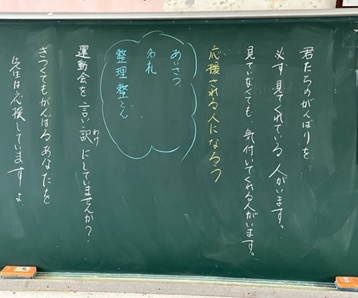 君たちのがんばりを
必ず見てくれている人がいます。
見ていなくても、気付いてくれる人がいます。
応援される人になろう
あいさつ
名札
整理整とん
運動会を言い訳にしていませんか？
わけ
きつくてもがんばるあなたを
先生は応援していますよ